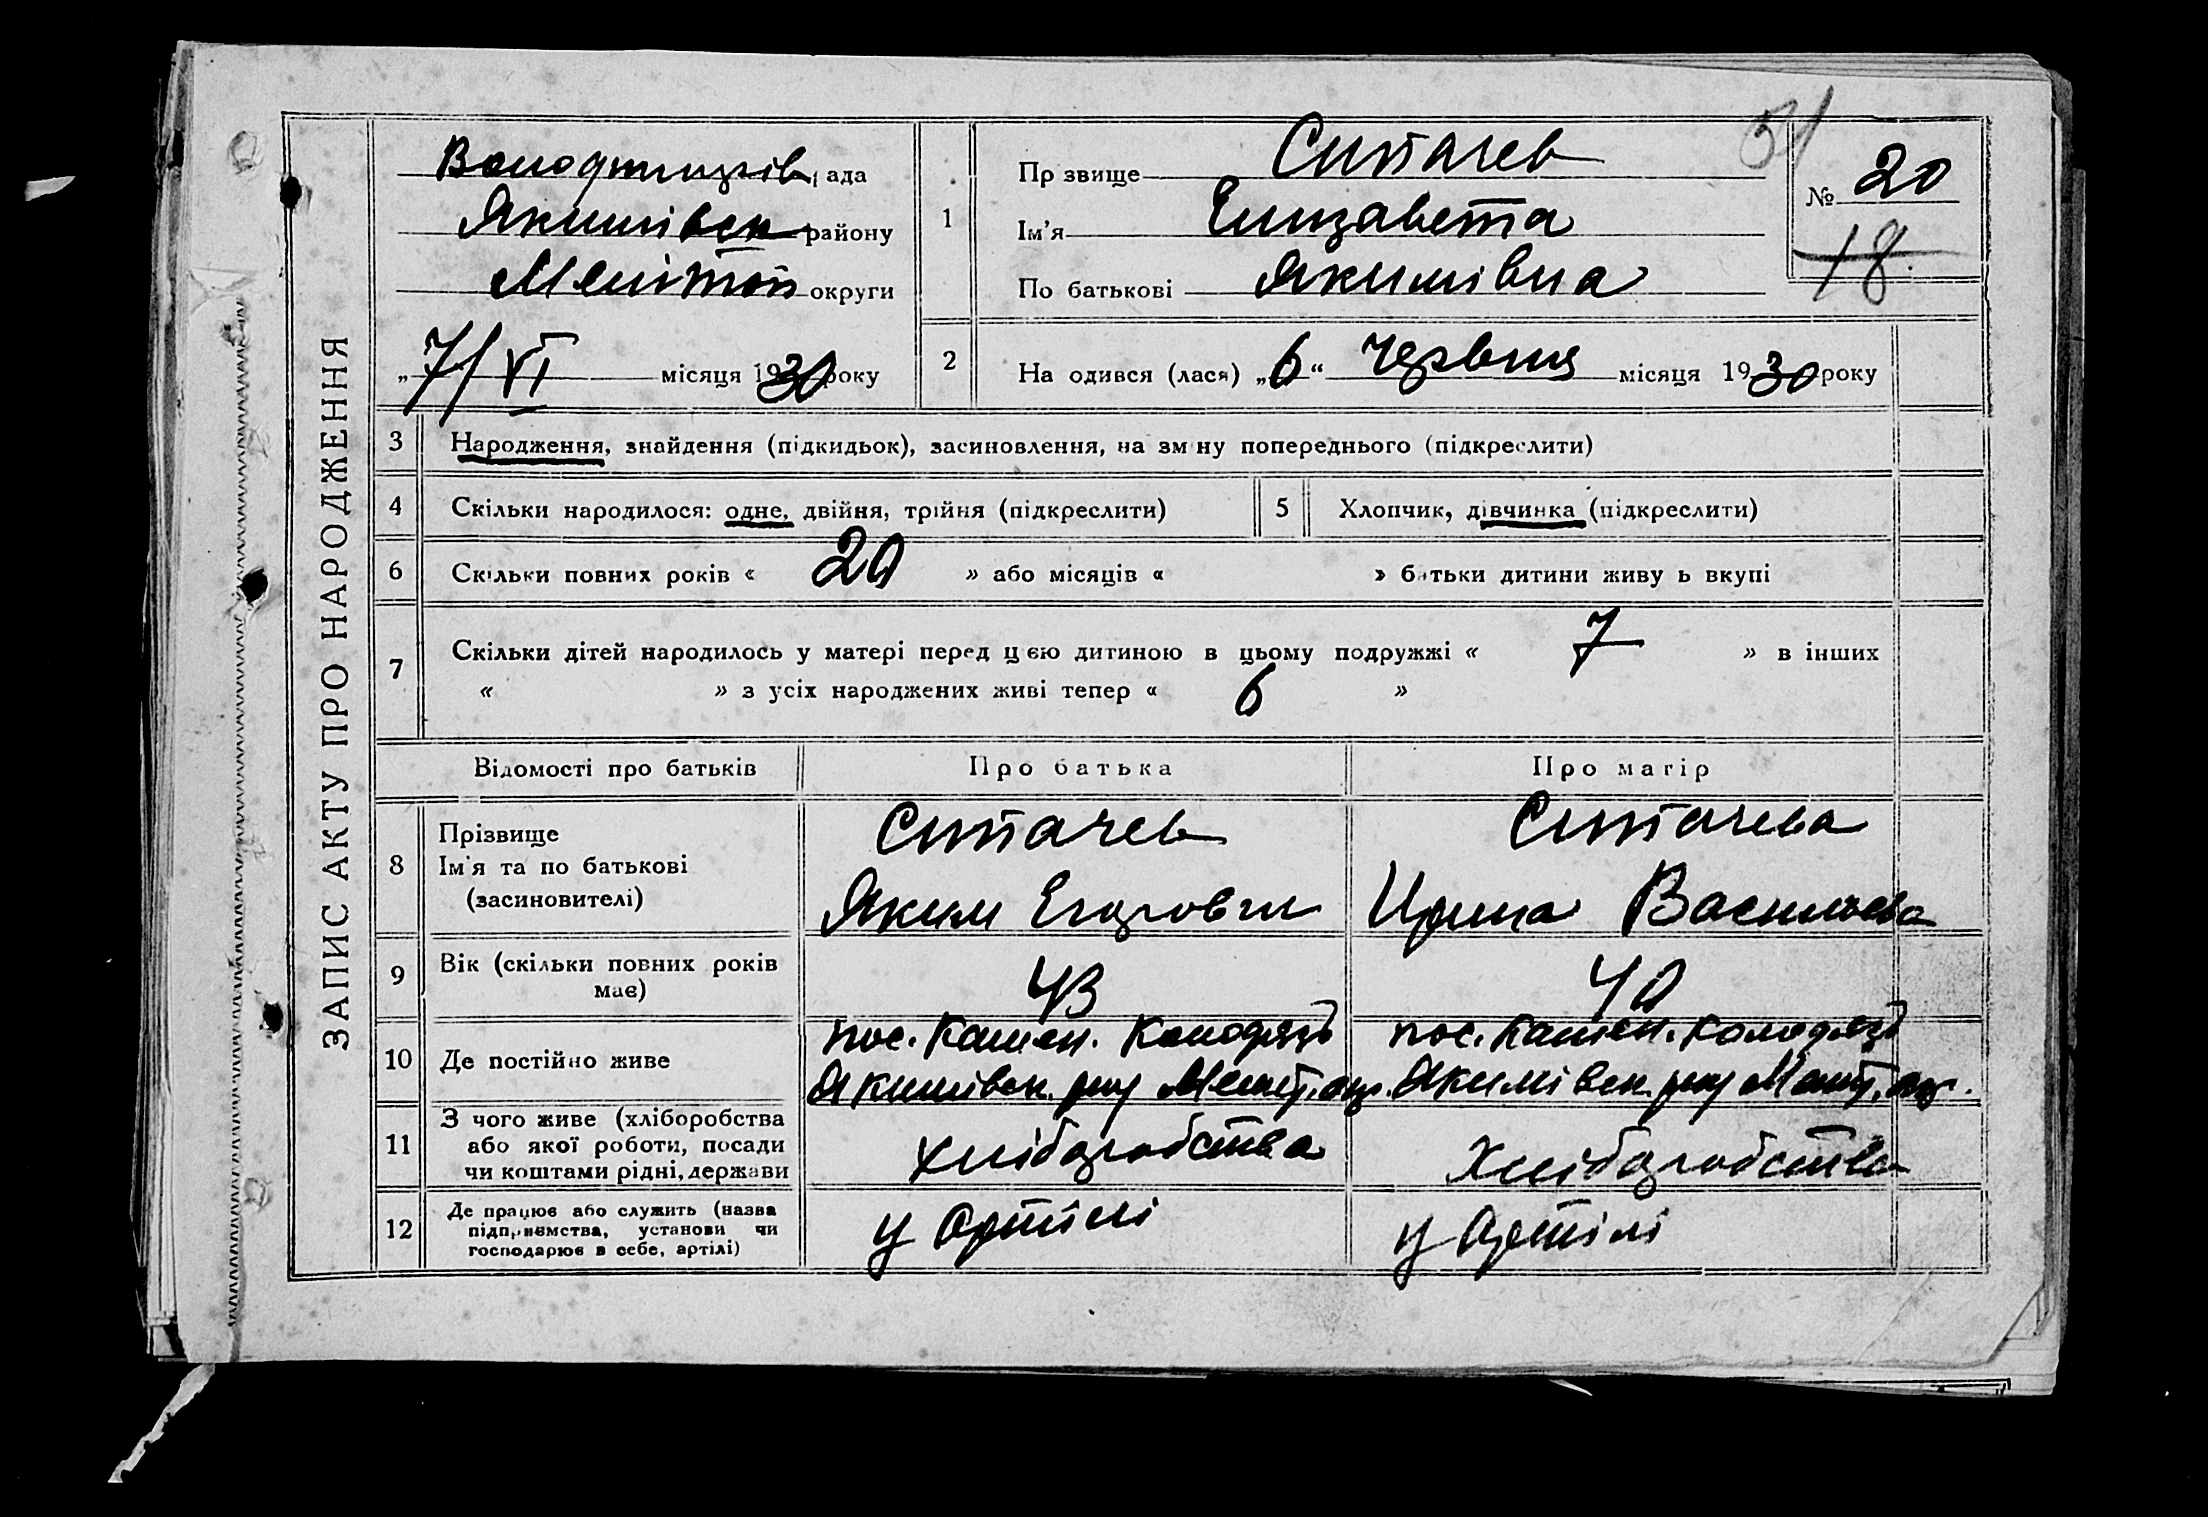 ЗАПИС АКТУ ПРО НАРОДЖЕННЯ
51
рада
Якимівськ району
Мелітоп округи
„7/VI місяця 1930 року
1
Прізвище Ситачев
Ім'я Елизавета
По батькові Якимівна
№ 20
18.
2
На одився (лася) „6“ Червня місяця 1930 року
3 Народження, знайдення (підкидьок), засиновлення, на зміну попереднього (підкреслити)
4 Скільки народилося: одне, двійня, трійня (підкреслити)
5 Хлопчик, дівчинка (підкреслити)
6 Скільки повних років « 20 » або місяців « » батьки дитини живуть вкупі
7 Скільки дітей народилось у матері перед цією дитиною в цьому подружжі « 7 » в інших
« » з усіх народжених живі тепер « 6 »
Відомості про батьків Про батька Про матір
8 Прізвище
Ім'я та по батькові
(засиновителі)
Ситачев
Яким Егорович
Ситачева
Ирина Васильева
9 Вік (скільки повних років
має)
43
40
10 Де постійно живе
пос. Камен. Колодязь
Якимівськ. рну Меліт. окр.
пос. Камен. Колодязь
Якимівськ. рну Меліт. окр.
11 З чого живе (хліборобства
або якої роботи, посади
чи коштами рідні, держави
хліборобства
Хліборобства
12 Де працює або служить (назва
підприємства, установи чи
господарює в себе, артілі)
у Артілі
у Артілі